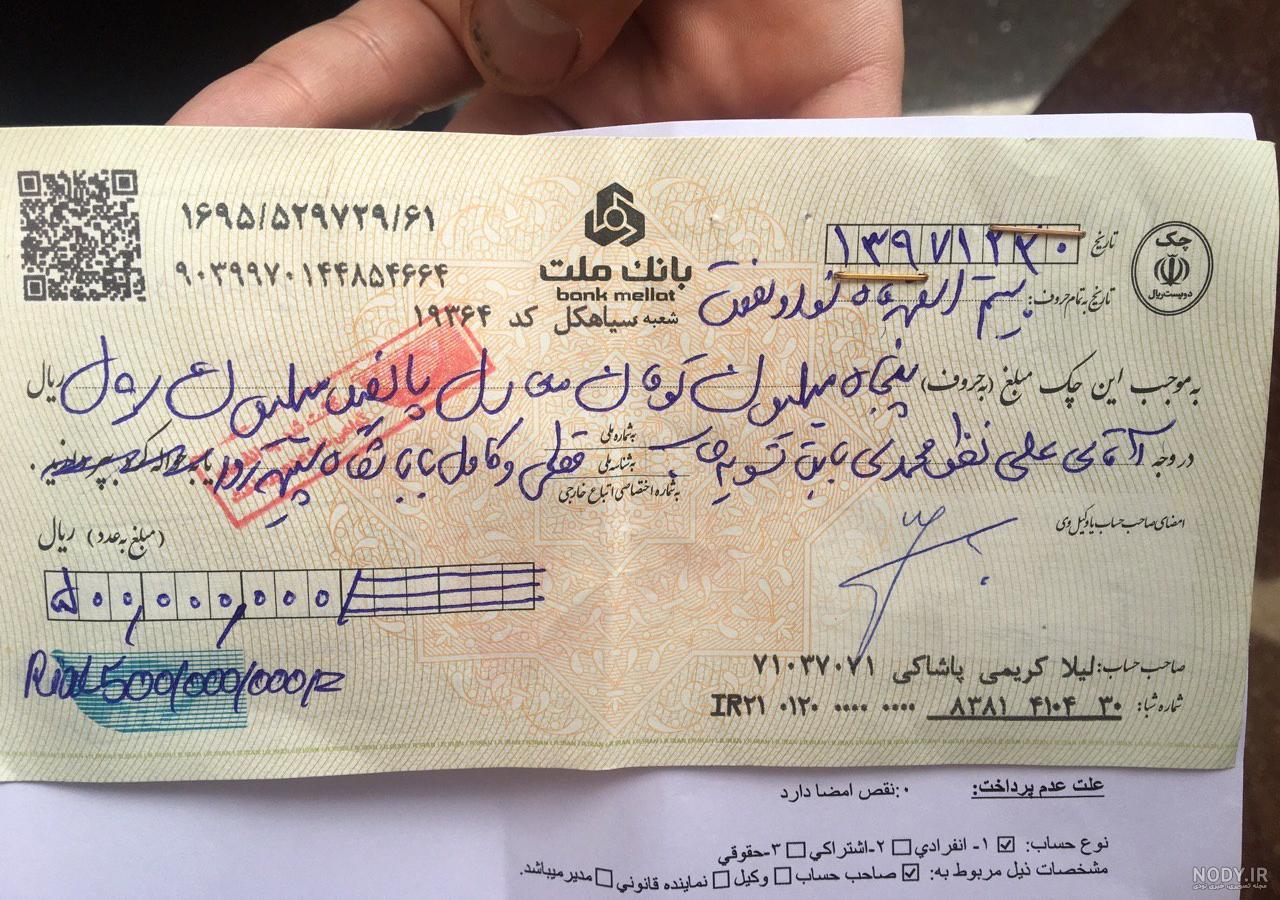 ۱۶۹۵/۵۲۹۷۲۹/۶۱
۹۰۳۹۹۷۰۱۴۴۸۵۴۶۶۴
بانک ملت
bank mellat
شعبه سیاهکل کد ۱۹۳۶۴
تاریخ ۱۳۹۷۱۲۲۰
تاریخ به تمام حروف: بیستم اسفند ماه نود و هفت
چک
دویست ریال
به موجب این چک مبلغ (به حروف) پنجاه میلیون تومان معادل پانصد میلیون ریال ریال
در وجه آقای علی محمدی بابت تسویه حساب قطعی و کامل
به شماره ملی
به شناسه ملی
به شماره اختصاصی اتباع خارجی
یا به حواله کرد بپردازید .
امضای صاحب حساب یا وکیل وی
(مبلغ به عدد) ریال
۵۰۰,۰۰۰,۰۰۰/
Rial 500/000/000/
صاحب حساب: لیلا کریمی پاشاکی ۷۱۰۳۷۰۷۱
شماره شبا: IR۲۱ ۰۱۲۰ ۰۰۰۰ ۰۰۰۰ ۸۳۸۱ ۴۱۰۴ ۳۰
علت عدم پرداخت: ۰:نقص امضا دارد
نوع حساب: ☑ ۱- انفرادي ☐ ۲-اشتراكي ☐ ۳-حقوقي
مشخصات ذیل مربوط به: ☑ صاحب حساب ☐ وکیل ☐ نماینده قانوني ☐ مدیر میباشد.
NODY.IR